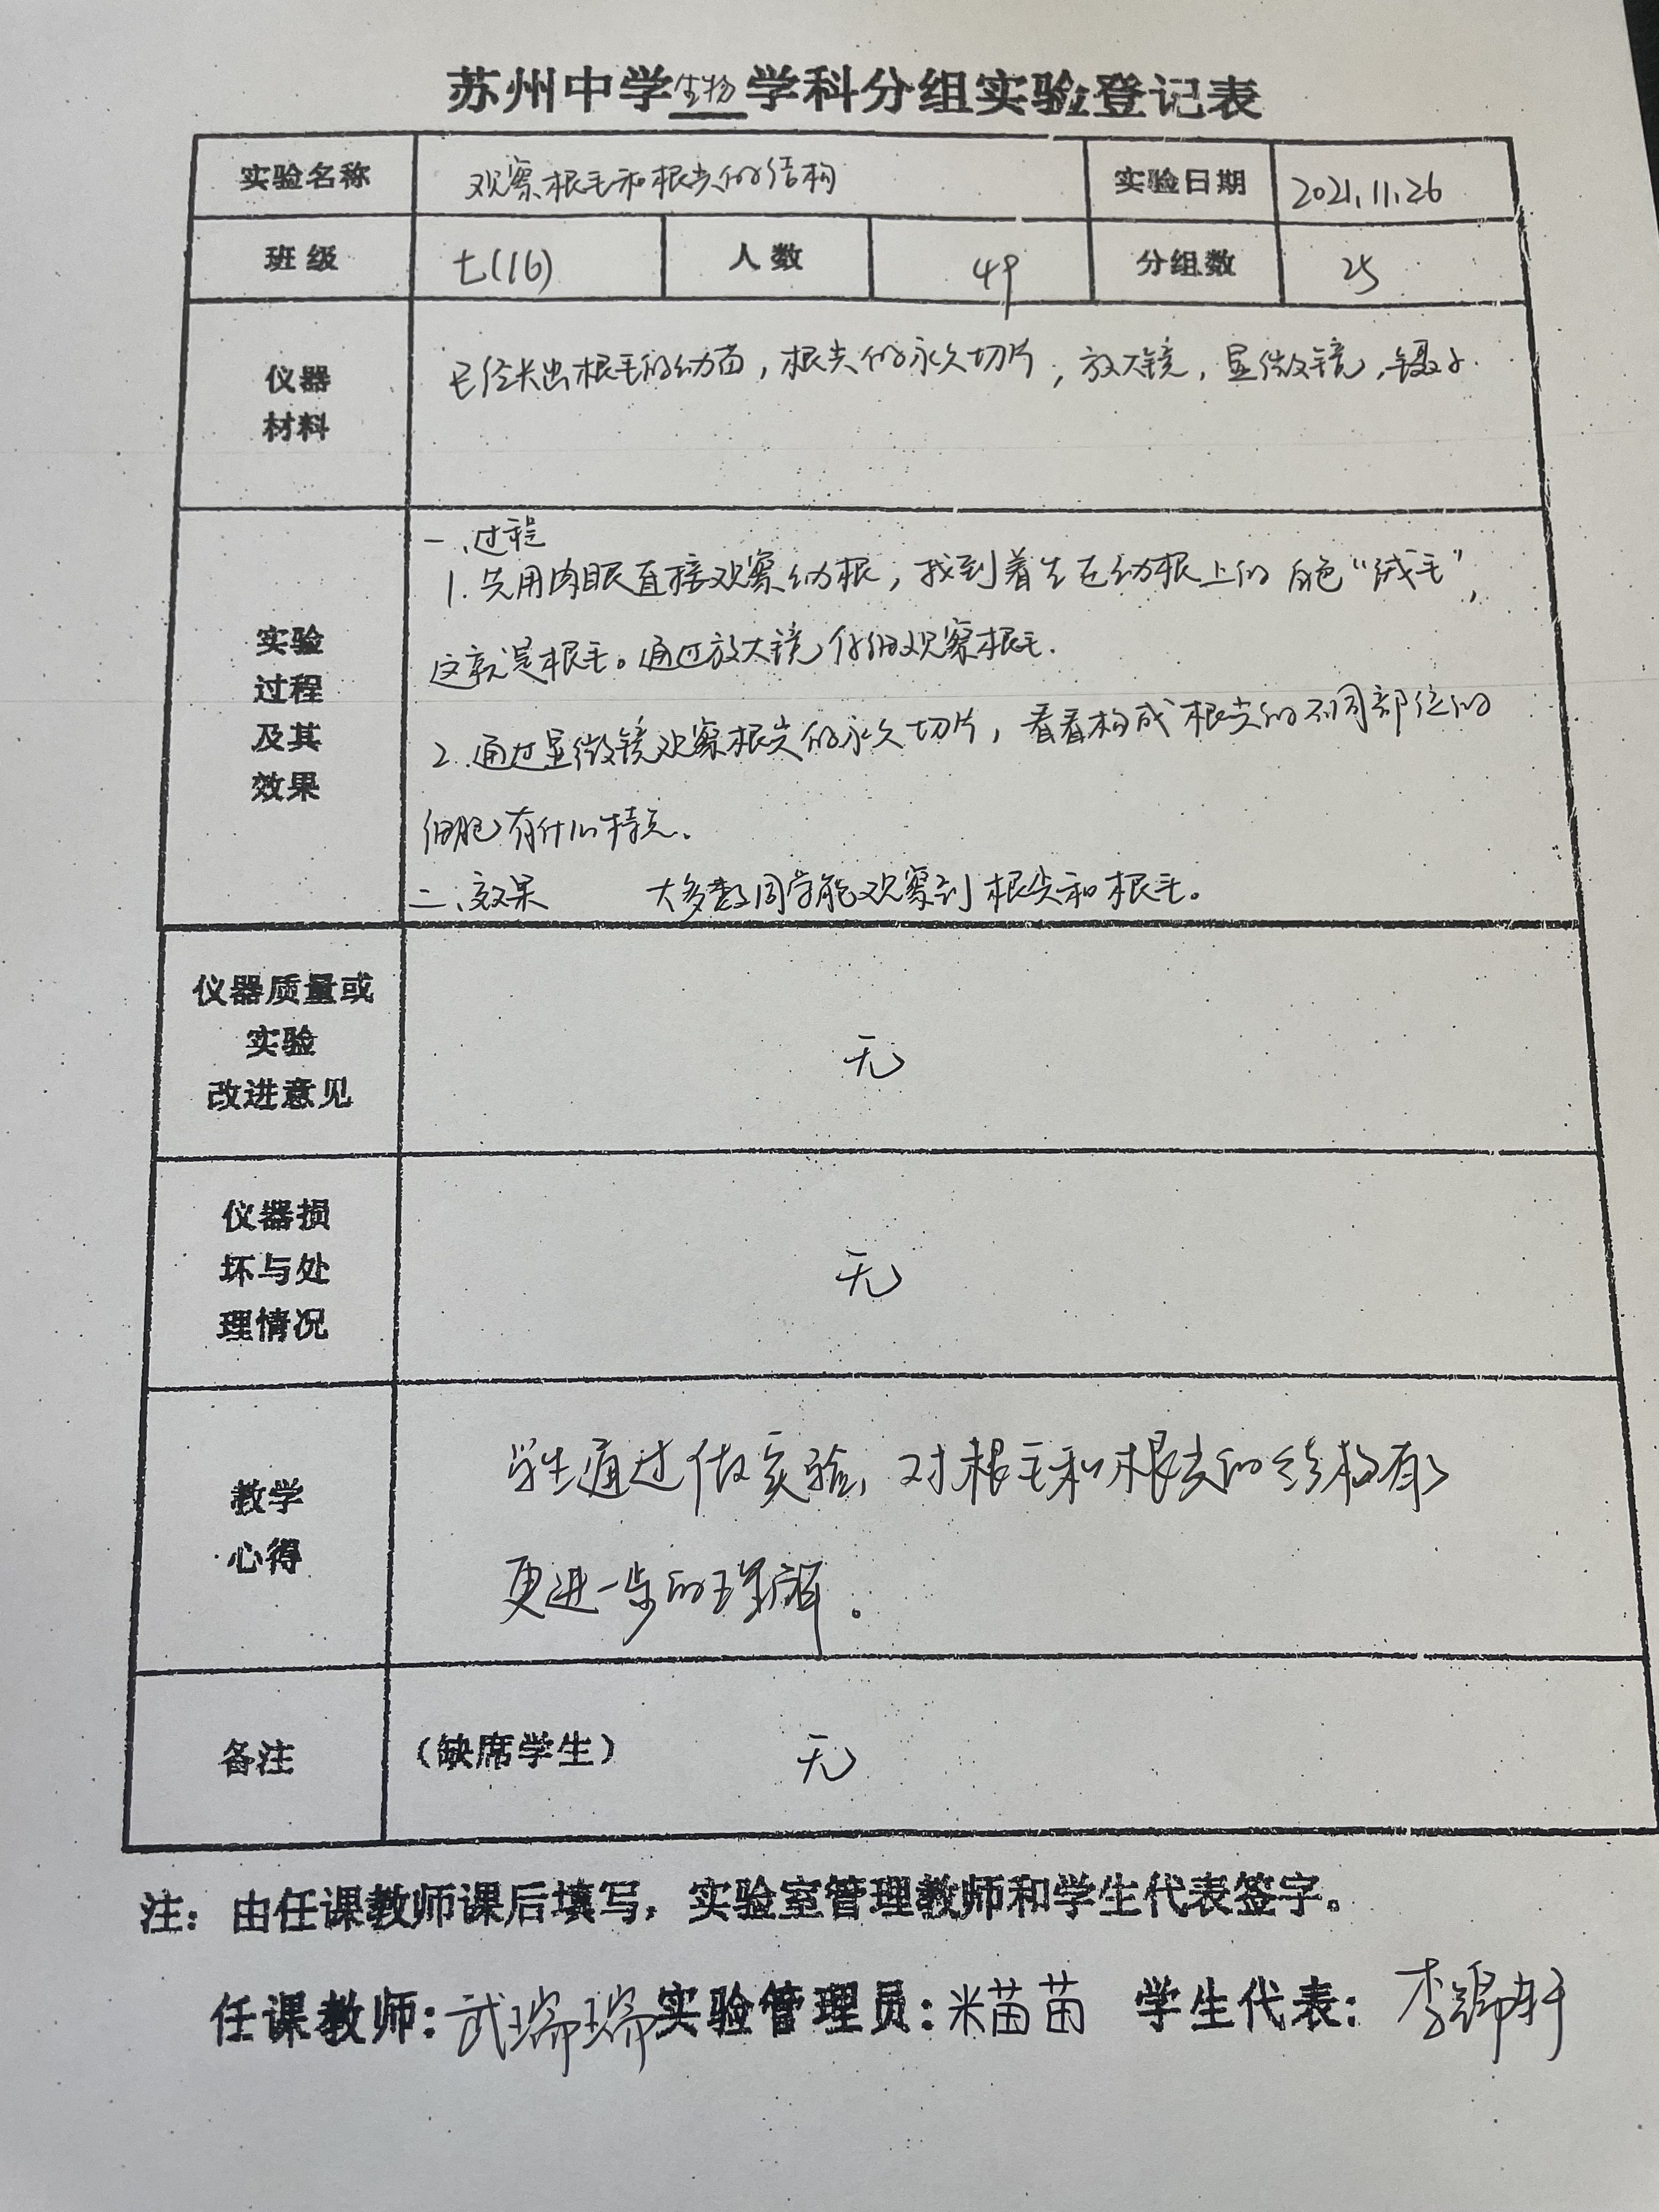 苏州中学生物学科分组实验登记表
实验名称 观察根毛和根尖的结构 实验日期 2021.11.26
班级 七(16) 人数 49 分组数 25
仪器
材料
已经长出根毛的幼苗，根尖的永久切片，放大镜，显微镜，镊子.
实验
过程
及其
效果
一、过程
1. 先用肉眼直接观察幼根，找到着生在幼根上的白色“绒毛”，
这就是根毛。通过放大镜仔细观察根毛.
2. 通过显微镜观察根尖的永久切片，看看构成根尖的不同部位的
细胞有什么特点。
二、效果 大多数同学能观察到根尖和根毛。
仪器质量或
实验
改进意见
无
仪器损
坏与处
理情况
无
教学
心得
学生通过做实验，对根毛和根尖的结构有了
更进一步的理解。
备注 （缺席学生） 无
注：由任课教师课后填写，实验室管理教师和学生代表签字。
任课教师：武瑞瑞 实验管理员：米苗苗 学生代表：李轩